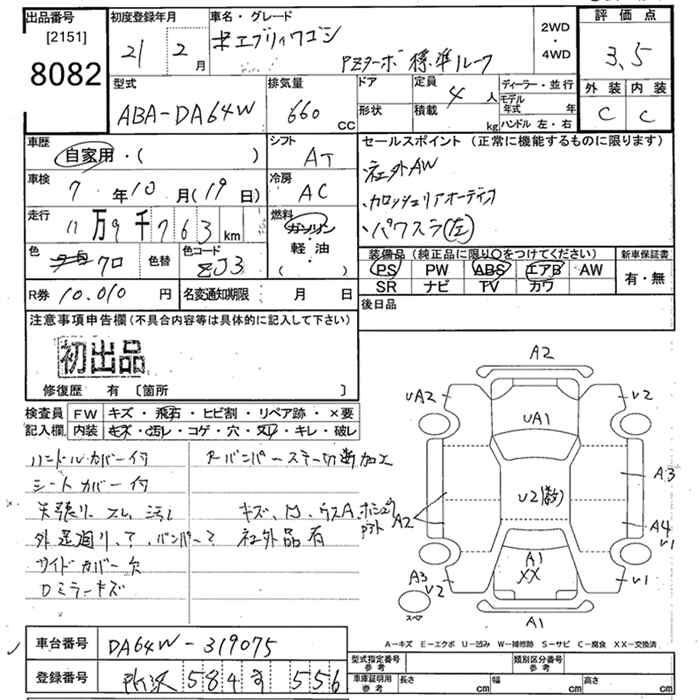 出品番号
[2151]
8082
初度登録年月
21年 2月
車名・グレード
エブリィワゴン
PZターボ 標準ルーフ
2WD
・
4WD
評価点
3.5
外装 内装
C C
型式
ABA-DA64W
排気量
660 CC
ドア
形状
定員 4人
積載 kg
ディーラー・並行
モデル年式 年
ハンドル 左・右
車歴
自家用・( )
シフト
AT
車検
7年10月(19日)
冷房
AC
走行
11万9千763km
燃料
ガソリン
・
軽油
・
( )
色
クロ
色替
色コード
ZJ3
R券 10.010円
名変通知期限 月 日
セールスポイント (正常に機能するものに限ります)
・社外AW
・カロッツェリアオーディオ
・パワスラ(左)
装備品 (純正品に限り○をつけてください)
PS PW ABS エアB AW
SR ナビ TV カワ
新車保証書
有・無
後日品
注意事項申告欄(不具合内容等は具体的に記入して下さい)
初出品
修復歴 有 〔箇所 〕
検査員記入欄
FW キズ・飛石・ヒビ割・リペア跡・×要
内装 キズ・汚レ・コゲ・穴・スリ・キレ・破レ
ハンドルカバー付
シートカバー付
天張り スレ 汚レ
サイドカバー欠
Dミラーキズ
バンパーステー切断加工
キズ、凹、ウスA、ホシュウ
社外品有
A2
UA2
U2
UA1
U2(数)
A3
A2
A4
U1
A1
XX
A3
U2
U1
スペア
A1
A-キズ E-エクボ U-凹み W-補修跡 S-サビ C-腐食 XX-交換済
車台番号 DA64W-319075
登録番号 所沢 584 す 556
型式指定番号 参考
類別区分番号 参考
車庫証明用 参考
長さ cm
幅 cm
高さ cm